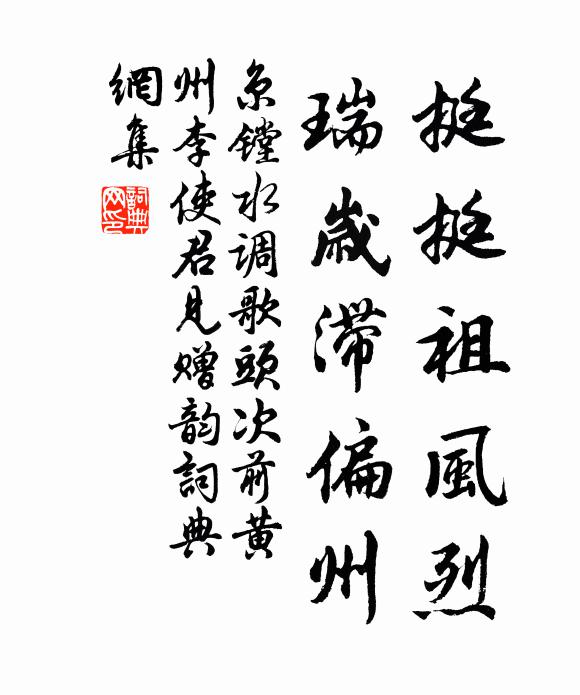 挺挺祖風烈
瑞歲滯偏州
京鏜水調歌頭次前黄
州李使君見贈韵詞典
網集
詞典
网印